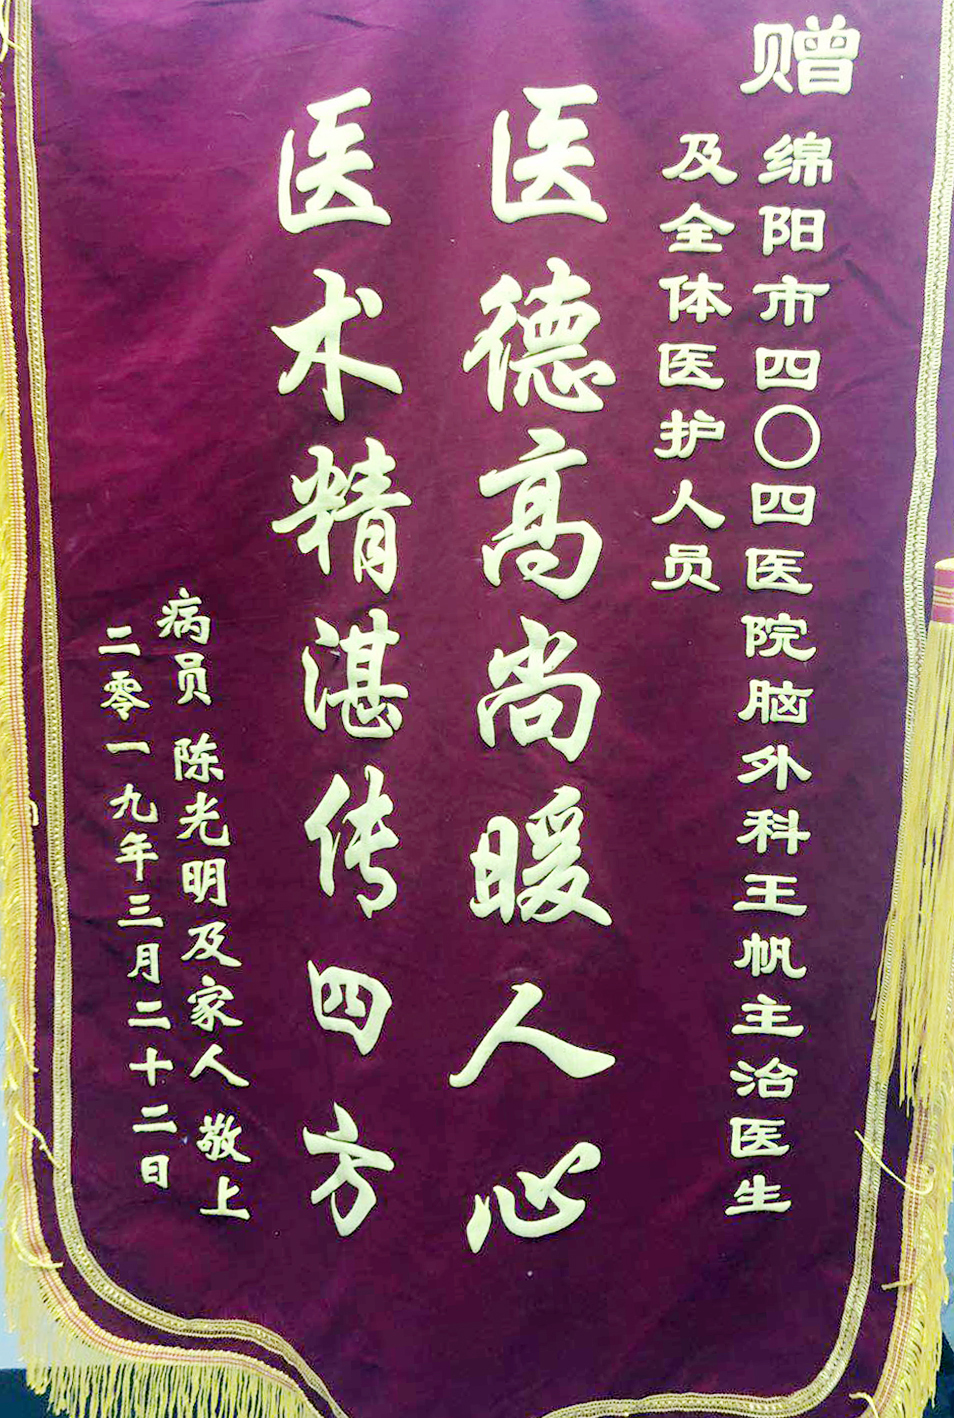 赠
绵阳市四〇四医院脑外科王帆主治医生
及全体医护人员
医德高尚暖人心
医术精湛传四方
病员 陈光明及家人 敬上
二零一九年三月二十二日